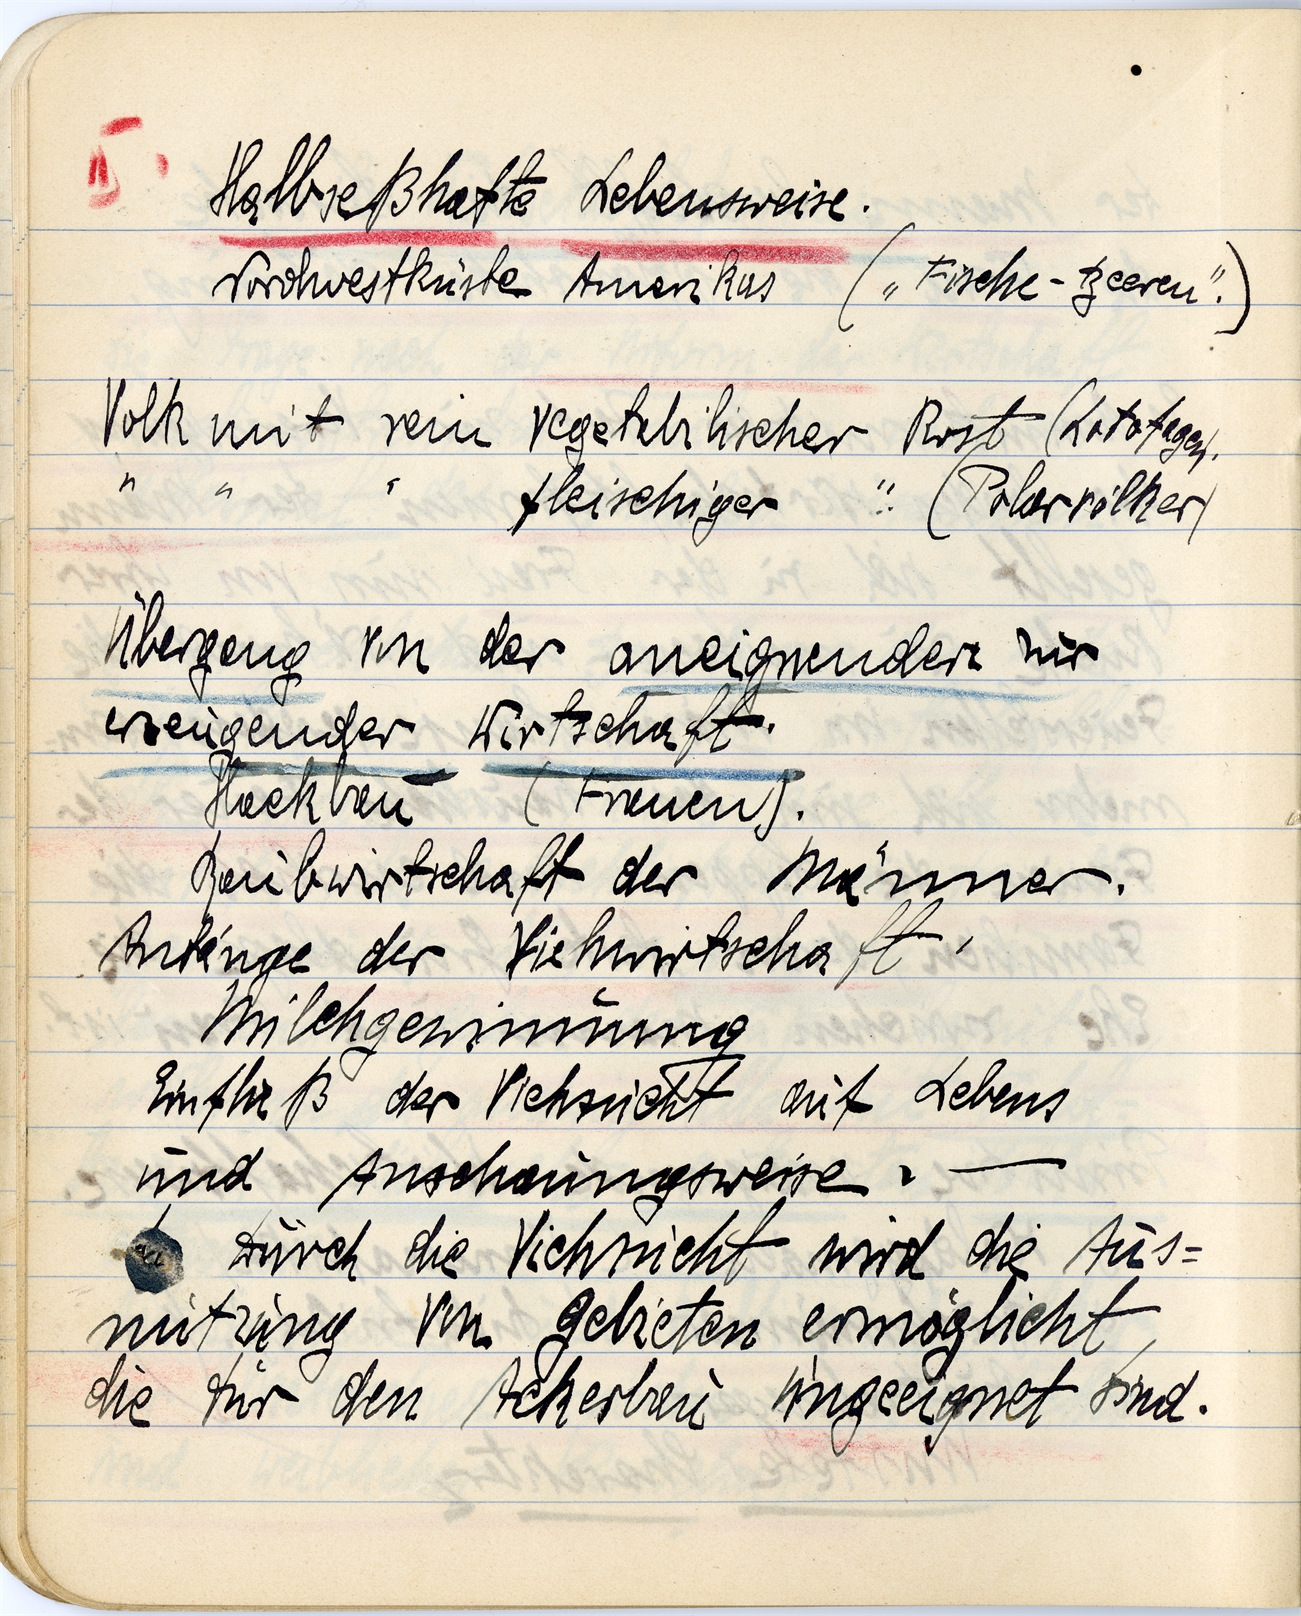 Halbseßhafte Lebensweise.
Nordwestküste Amerikas („Fische-Beeren".)
Volk mit rein vegetabilischer Kost (Lotofagen).
" " " fleischiger " (Polarvölker)
Übergang von der aneignenden zur
erzeugender Wirtschaft.
Hackbau (Frauen).
Raubwirtschaft der Männer.
Anfänge der Viehwirtschaft,
Milchgewinnung
Einfluß der Viehzucht auf Lebens
und Anschauungsweise. —
Durch die Viehzucht wird die Aus=
nutzung von Gebieten ermöglicht,
die für den Ackerbau ungeeignet sind.